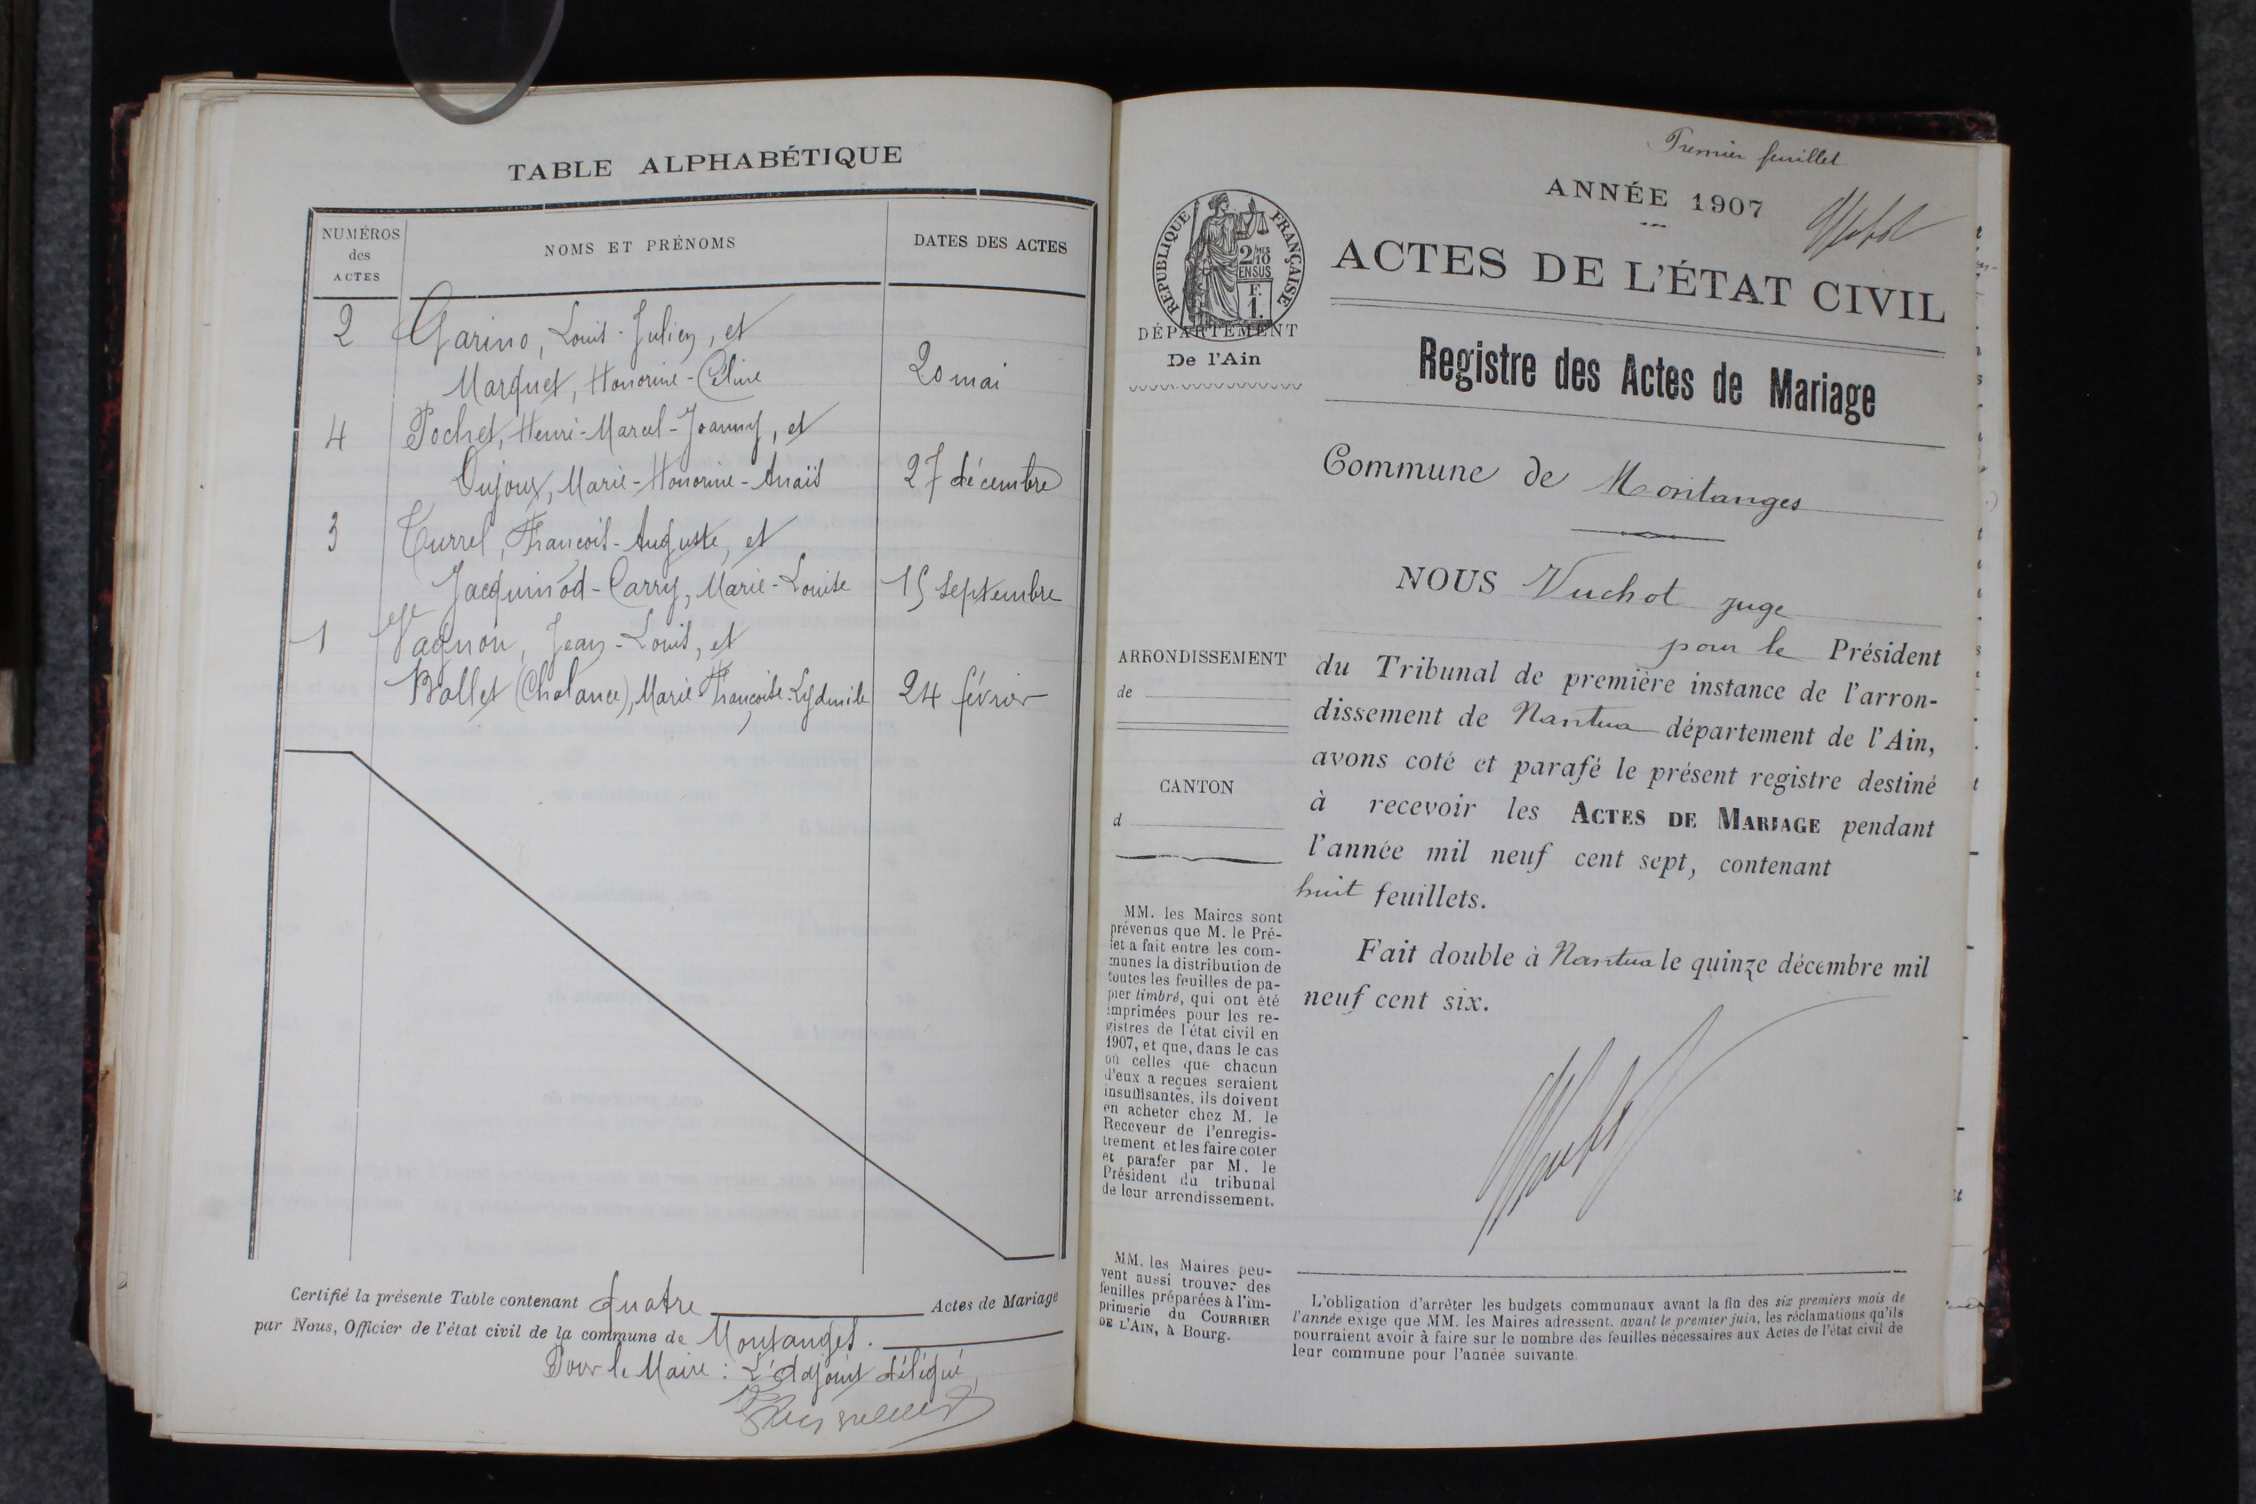 TABLE ALPHABÉTIQUE
NUMÉROS
des
ACTES
NOMS ET PRÉNOMS
DATES DES ACTES
2 Garino, Louis-Julien, et
Marquet, Honorine-Céline 20 mai
4 Pochet, Henri-Marcel-Joanny, et
Dujoux, Marie-Honorine-Anaïs 27 décembre
3 Turrel, François-Auguste, et
Jacquinod-Carry, Marie-Louise 15 septembre
1 Vagnon, Jean-Louis, et
Ballet (Chalance), Marie Françoise-Lydmile 24 février
Certifié la présente Table contenant quatre Actes de Mariage
par Nous, Officier de l'état civil de la commune de Montanges.
Pour le Maire : L'adjoint délégué,
Premier feuillet
ANNÉE 1907
ACTES DE L'ÉTAT CIVIL
RÉPUBLIQUE FRANÇAISE
2/10
EN SUS
F.
1.
DÉPARTEMENT
De l'Ain
Registre des Actes de Mariage
Commune de Montanges
NOUS Vuchot juge
pour le Président
du Tribunal de première instance de l'arron-
dissement de Nantua département de l'Ain,
avons coté et parafé le présent registre destiné
à recevoir les ACTES DE MARIAGE pendant
l'année mil neuf cent sept, contenant
huit feuillets.
Fait double à Nantua le quinze décembre mil
neuf cent six.
ARRONDISSEMENT
de
CANTON
d
MM. les Maires sont
prévenus que M. le Pré-
fet a fait entre les com-
munes la distribution de
toutes les feuilles de pa-
pier timbré, qui ont été
imprimées pour les re-
gistres de l'état civil en
1907, et que, dans le cas
où celles que chacun
d'eux a reçues seraient
insuffisantes, ils doivent
en acheter chez M. le
Receveur de l'enregis-
trement et les faire coter
et parafer par M. le
Président du tribunal
de leur arrondissement.
MM. les Maires peu-
vent aussi trouver des
feuilles préparées à l'im-
primerie du COURRIER
DE L'AIN, à Bourg.
L'obligation d'arrêter les budgets communaux avant la fin des six premiers mois de
l'année exige que MM. les Maires adressent, avant le premier juin, les réclamations qu'ils
pourraient avoir à faire sur le nombre des feuilles nécessaires aux Actes de l'état civil de
leur commune pour l'année suivante.